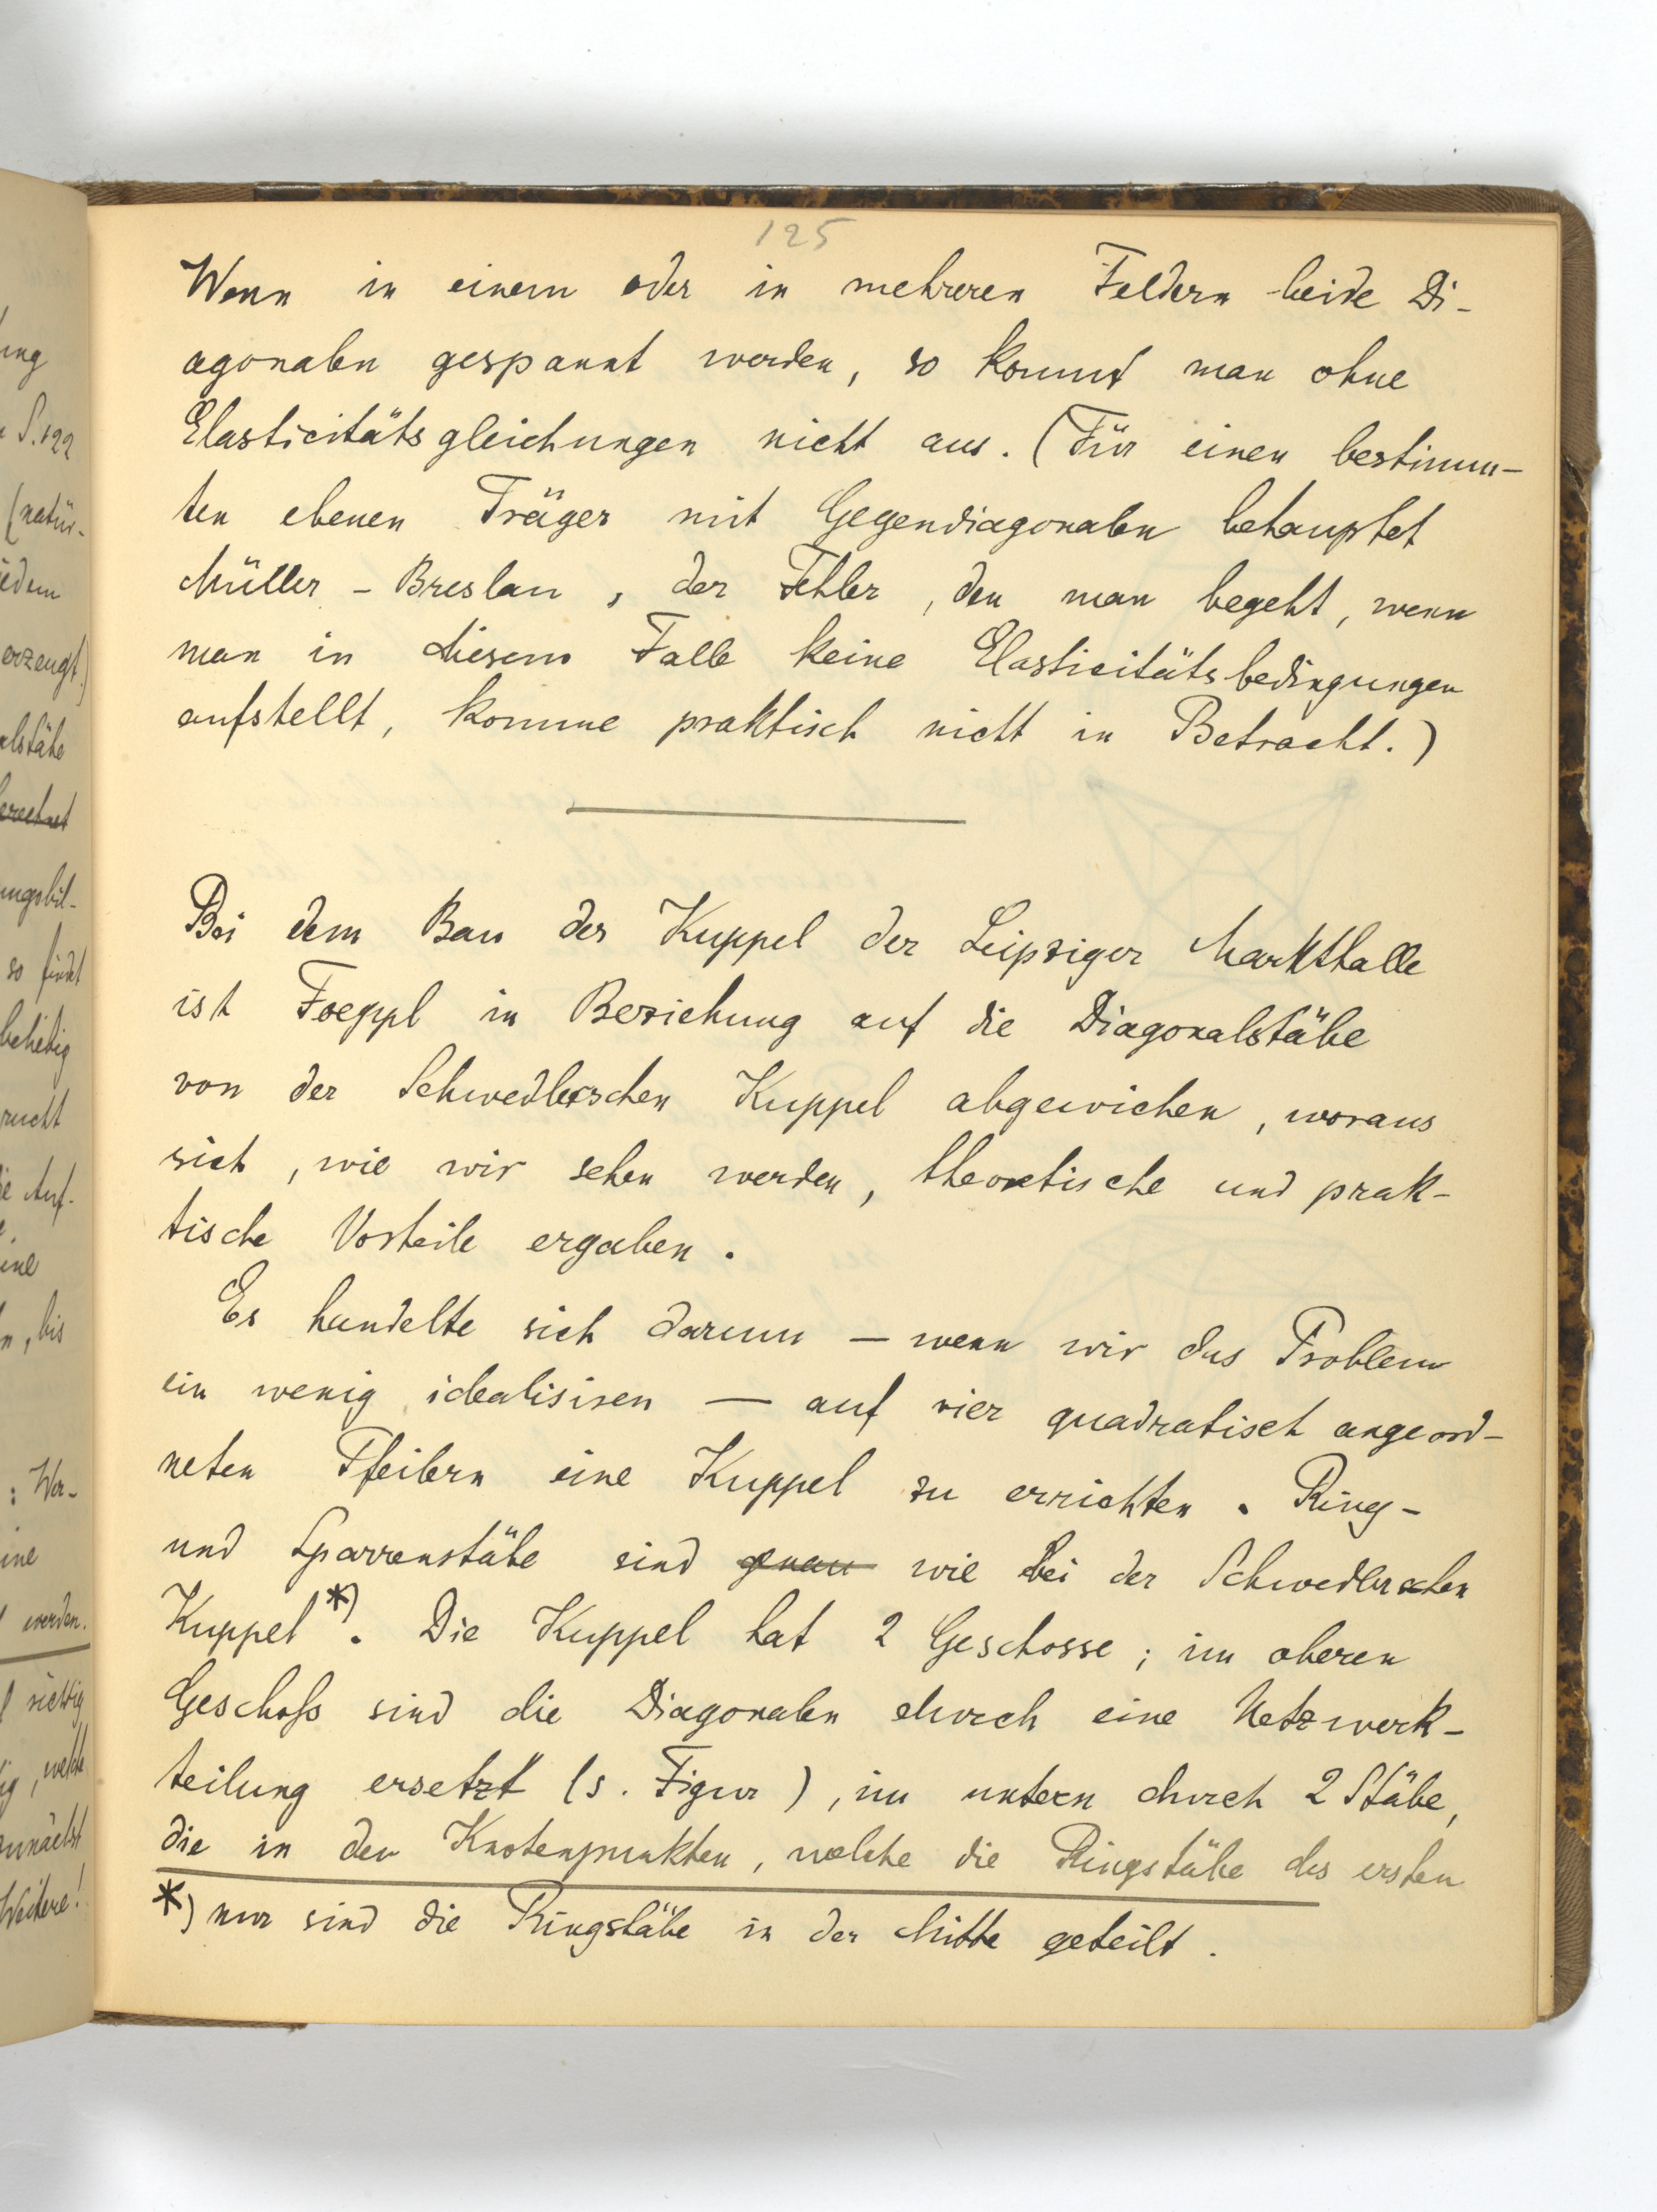 125
Wenn in einem oder in mehreren Feldern beide Di-
agonalen gespannt werden, so kommt man ohne
Elasticitätsgleichungen nicht aus. (Für einen bestimm-
ten ebenen Träger mit Gegendiagonalen behauptet
Müller-Breslau, der Fehler, den man begeht, wenn
man in diesem Falle keine Elasticitätsbedingungen
aufstellt, komme praktisch nicht in Betracht.)
Bei dem Bau der Kuppel der Leipziger Markthalle
ist Foeppl in Beziehung auf die Diagonalstäbe
von der Schwedlerschen Kuppel abgewichen, woraus
sich, wie wir sehen werden, theoretische und prak-
tische Vorteile ergaben.
Es handelte sich darum — wenn wir das Problem
ein wenig idealisiren — auf vier quadratisch angeord-
neten Pfeilern eine Kuppel zu errichten. Ring-
und Sparrenstäbe sind genau wie bei der Schwedlerschen
Kuppel*). Die Kuppel hat 2 Geschosse; im oberen
Geschoß sind die Diagonalen durch eine Netzwerk-
teilung ersetzt (s. Figur), im untern durch 2 Stäbe,
die in den Knotenpunkten, welche die Ringstäbe des ersten
*) nur sind die Ringstäbe in der Mitte geteilt.
ung
S. 122
(natür-
jedem
erzeugt.)
alstäbe
so findet
beliebig
Auf-
eine
n, bis
: Wer-
eine
werden.
richtig
, welche
zunächst
Weitere!